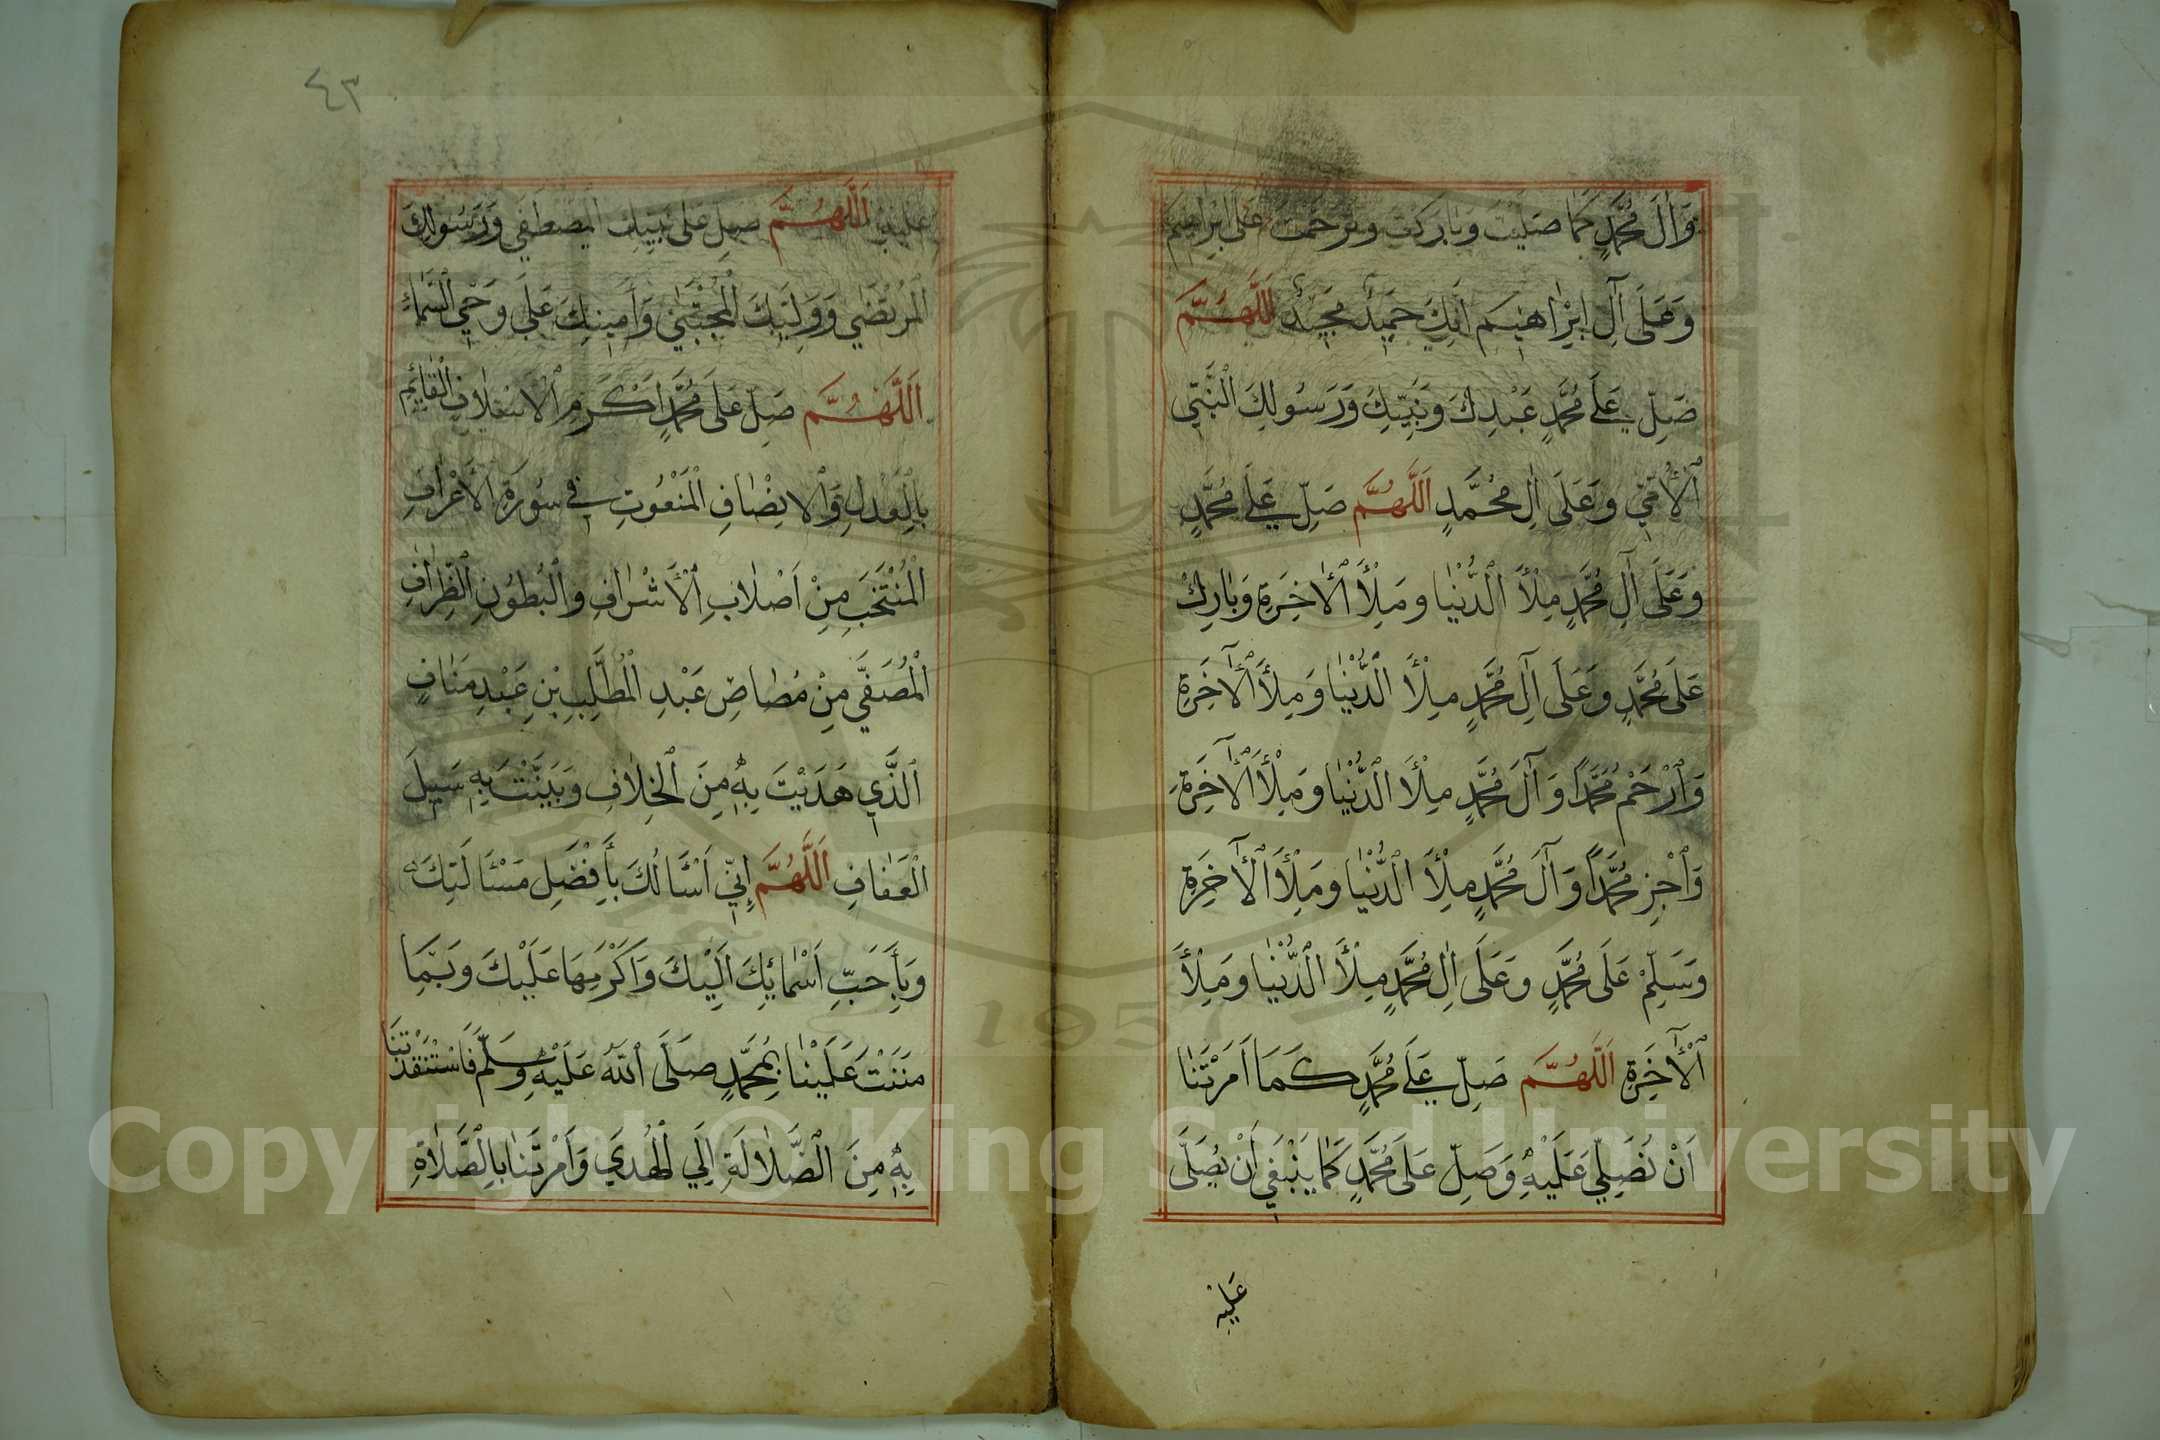 وَآلَ مُحَمَّدٍ كَمَا صَلَّيْتَ وَبَارَكْتَ وَتَرَحَّمْتَ عَلَى إِبْرَاهِيمَ
وَعَلَى آلِ إِبْرَاهِيمَ إِنَّكَ حَمِيدٌ مَجِيدٌ اَللَّهُمَّ
صَلِّ عَلَى مُحَمَّدٍ عَبْدِكَ وَنَبِيِّكَ وَرَسُولِكَ النَّبِيِّ
الْأُمِّيِّ وَعَلَى اٰلِ مُحَمَّدٍ اَللَّهُمَّ صَلِّ عَلَى مُحَمَّدٍ
وَعَلَى آلِ مُحَمَّدٍ مِلْأَ الدُّنْيَا وَمِلْأَ الْأٰخِرَةِ وَبَارِكْ
عَلَى مُحَمَّدٍ وَعَلَى آلِ مُحَمَّدٍ مِلْأَ الدُّنْيَا وَمِلْأَ الْآخِرَةِ
وَارْحَمْ مُحَمَّدًا وَآلَ مُحَمَّدٍ مِلْأَ الدُّنْيَا وَمِلْأَ الْآخِرَةِ
وَاجْزِ مُحَمَّدًا وَآلَ مُحَمَّدٍ مِلْأَ الدُّنْيَا وَمِلْأَ الْآخِرَةِ
وَسَلِّمْ عَلَى مُحَمَّدٍ وَعَلَى اٰلِ مُحَمَّدٍ مِلْأَ الدُّنْيَا وَمِلْأَ
الْآخِرَةِ اَللَّهُمَّ صَلِّ عَلَى مُحَمَّدٍ كَمَا اَمَرْتَنَا
اَنْ نُصَلِّيَ عَلَيْهِ وَصَلِّ عَلَى مُحَمَّدٍ كَمَا يَنْبَغِي اَنْ يُصَلَّى
عَلَيْهِ
٤٣
عَلَيْهِ اَللَّهُمَّ صَلِّ عَلَى نَبِيِّكَ الْمُصْطَفَى وَرَسُولِكَ
الْمُرْتَضَى وَوَلِيِّكَ الْمُجْتَبَى وَاَمِينِكَ عَلَى وَحْيِ السَّمَاءِ
اَللَّهُمَّ صَلِّ عَلَى مُحَمَّدٍ اَكْرَمِ الْاَسْلَافِ الْقَائِمِ
بِالْعَدْلِ وَالْاِنْصَافِ الْمَنْعُوتِ فِي سُورَةِ الْاَعْرَافِ
الْمُنْتَخَبِ مِنْ اَصْلَابِ الْأَشْرَافِ وَالْبُطُونِ الظِّرَافِ
الْمُصَفَّى مِنْ مُصَاصِ عَبْدِ الْمُطَّلِبِ بْنِ عَبْدِ مَنَافٍ
الَّذِي هَدَيْتَ بِهِ مِنَ الْخِلَافِ وَبَيَّنْتَ بِهِ سَبِيلَ
الْعَفَافِ اَللَّهُمَّ إِنِّي اَسْأَلُكَ بِأَفْضَلِ مَسْئَلَتِكَ
وَبِأَحَبِّ اَسْمَائِكَ اِلَيْكَ وَاَكْرَمِهَا عَلَيْكَ وَبِمَا
مَنَنْتَ عَلَيْنَا بِمُحَمَّدٍ صَلَّى اللَّهُ عَلَيْهِ وَسَلَّمَ فَاسْتَنْقَذْتَنَا
بِهِ مِنَ الضَّلَالَةِ اِلَى الْهُدَى وَاَمَرْتَنَا بِالصَّلَاةِ
1957
Copyright © King Saud University